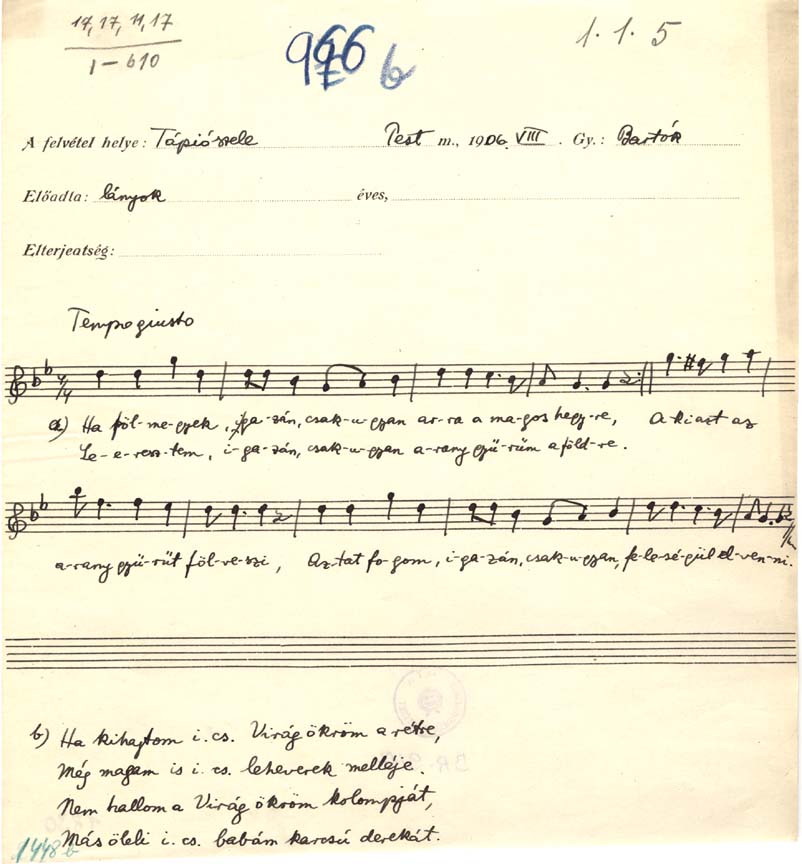 17, 17, 11, 17
I – 610
966 b
1. 1. 5
A felvétel helye: Tápiószele Pest m., 1906. VIII. Gy.: Bartók
Előadta: lányok éves,
Elterjeatség:
Tempo giusto
4/4
a) Ha föl-me-gyek, i-ga-zán, csak-u-gyan ar-ra a ma-gos hegy-re, A-ki azt az
Le-e-resz-tem, i-ga-zán, csak-u-gyan a-rany gyü-rüm a föld-re.
a-rany gyü-rűt föl-ve-szi, Az-tat fo-gom, i-ga-zán, csak-u-gyan, fe-le-sé-gül el-ven-ni.
b) Ha kihajtom i. cs. Virág ökröm a rétre,
Még magam is i. cs. leheverek melléje.
Nem hallom a Virág ökröm kolompját,
Más öleli i. cs. babám karcsú derekát.
1448 b